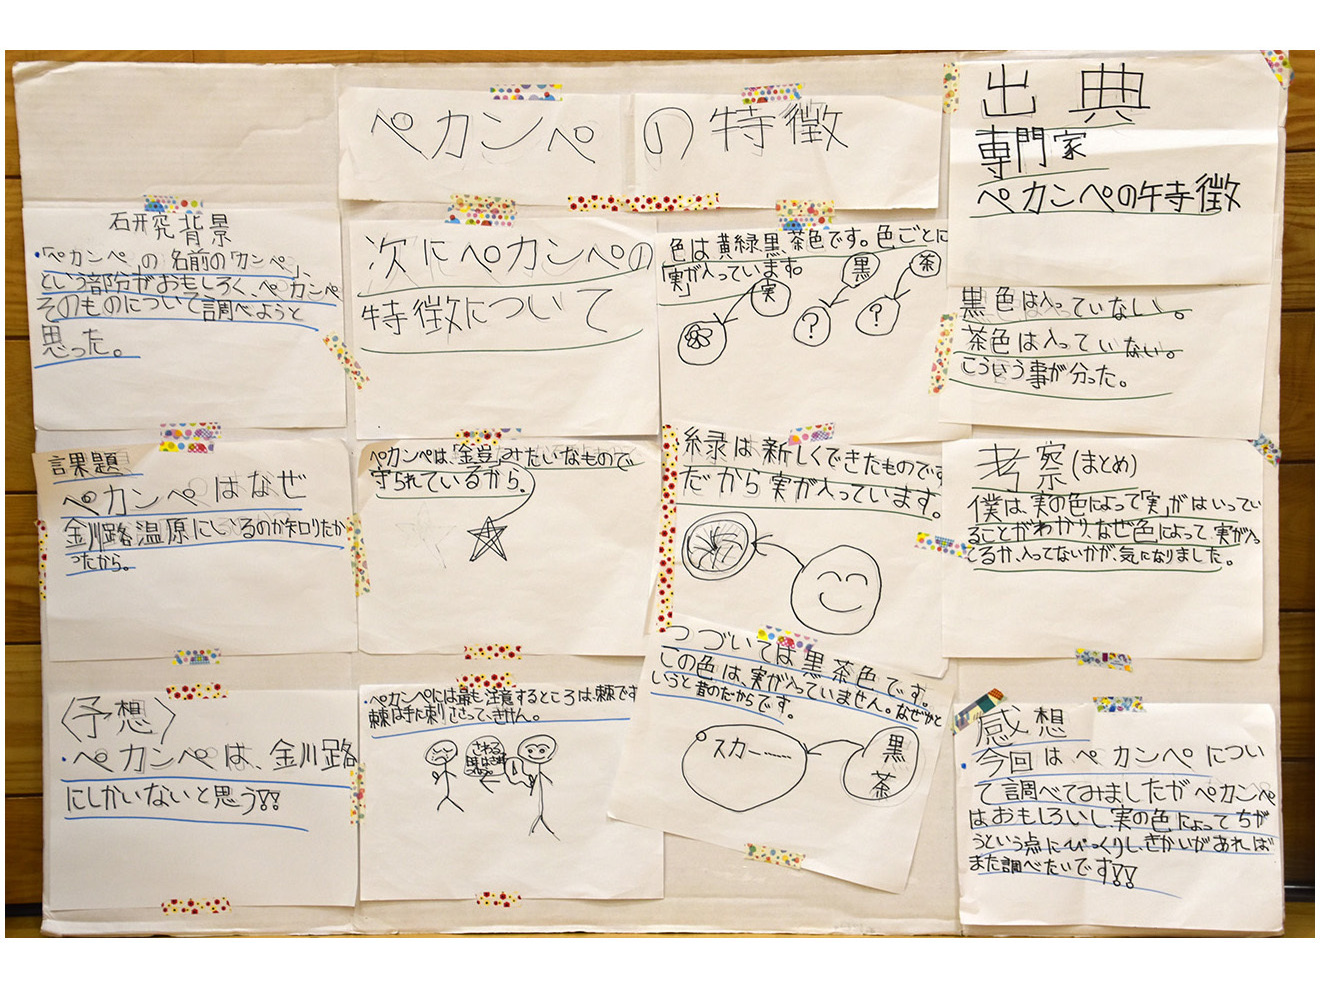 ペカンペの特徴
研究背景
・「ペカンペ」の名前の「カンペ」
という部分がおもしろく、ペカンペ
そのものについて調べようと
思った。
課題
ペカンペはなぜ
釧路湿原にいるのか知りたか
ったから。
〈予想〉
・ペカンペは、釧路
にしかいないと思う!!
次にペカンペの
特徴について
ペカンペは、「金星」みたいなもので
守られているから、
ペカンペには最も注意するところは棘です
棘は手に刺
さわる
色は黄緑、黒、茶色です。色ごとに
「実」が入っています。
実
黒
茶
?
?
緑は新しくできたものです
だから実が入っています。
つづいては黒茶色です。
この色は、実が入っていません。なぜかと
いうと昔のだからです。
スカー……
黒
茶
出典
専門家
ペカンペの特徴
黒色は入っていない。
茶色は入っていない。
こういう事が分った。
考察(まとめ)
僕は、実の色によって「実」がはいってい
ることがわかり、なぜ色によって、実が入っ
てるか、入ってないかが、気になりました。
感想
・今回はペカンペについ
て調べてみましたがペカンペ
はおもしろいし実の色によってちが
うという点にびっくりし、きかいがあれば
また調べたいです!!